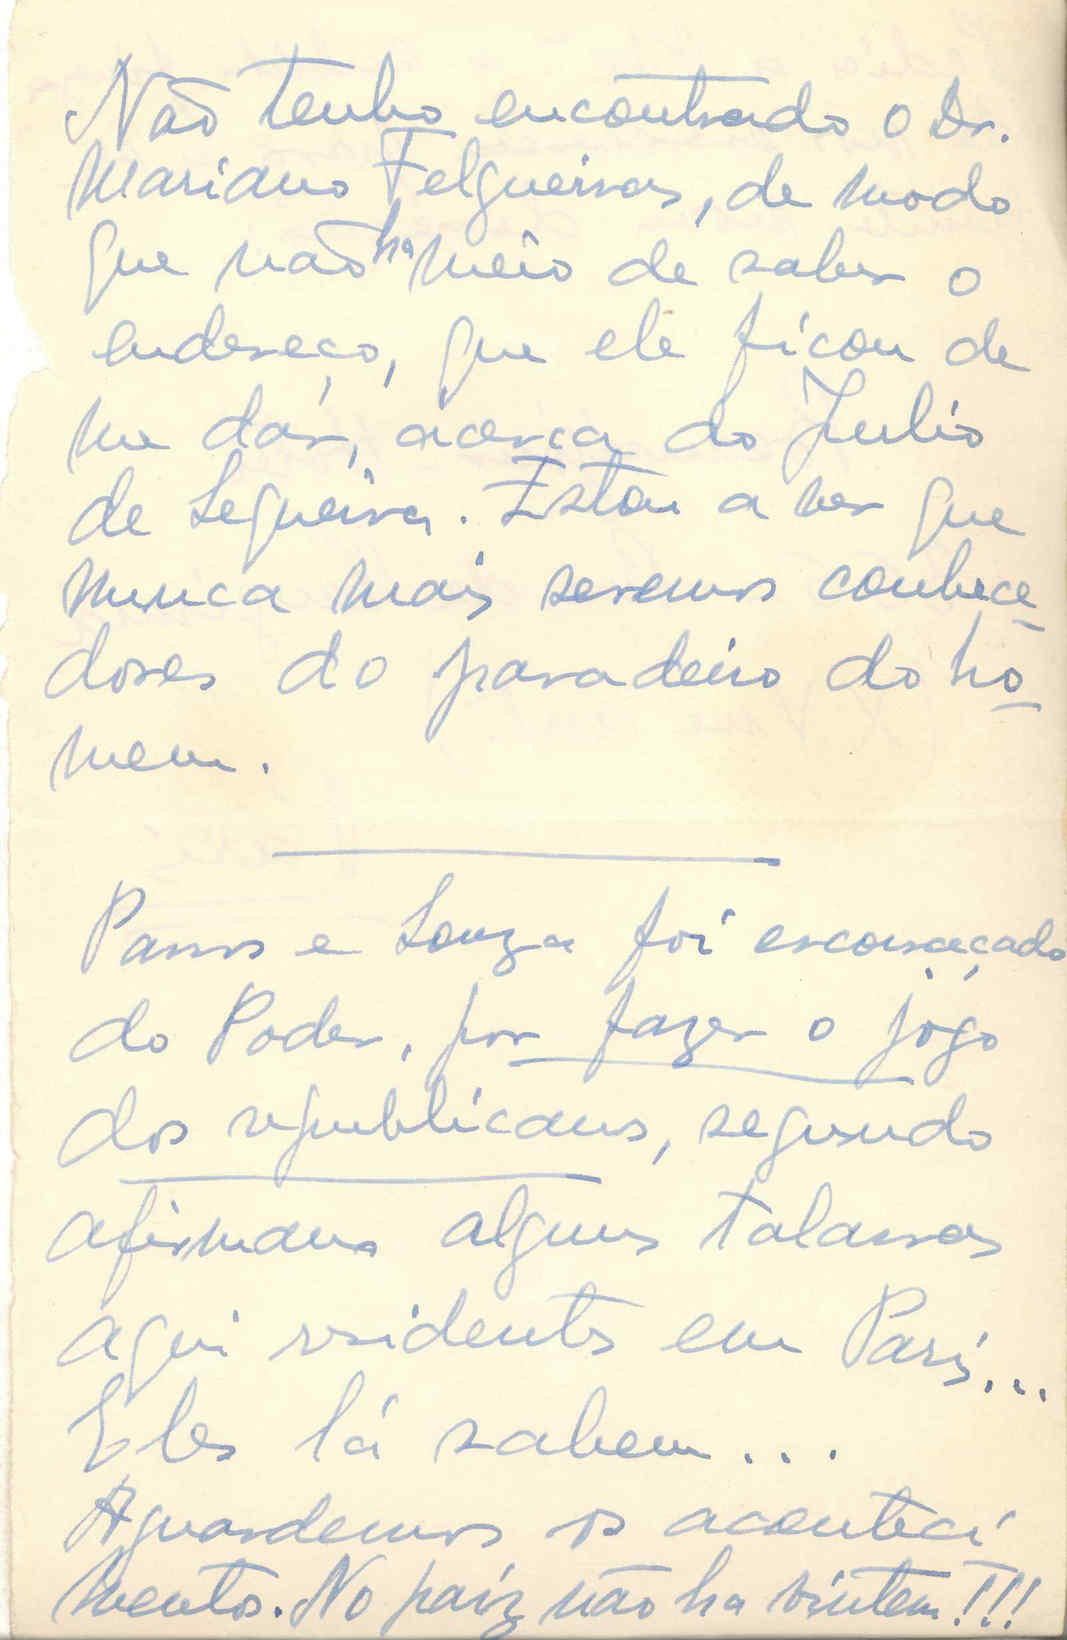 Não tenho encontrado o Dr.
Mariano Felgueiras, de modo
que não ha meio de saber o
endereço, que ele ficou de
me dár, ácerca do Julio
de Sequeira. Estou a ver que
nunca mais seremos conhece
dores do paradeiro do ho
mem.
Passos e Souza foi escorraçado
do Poder, por fazer o jôgo
dos republicanos, segundo
afirmam alguns talassas
aqui residentes em Paris...
Eles lá sabem...
Aguardemos os aconteci
mentos. No paiz não ha vintem!!!